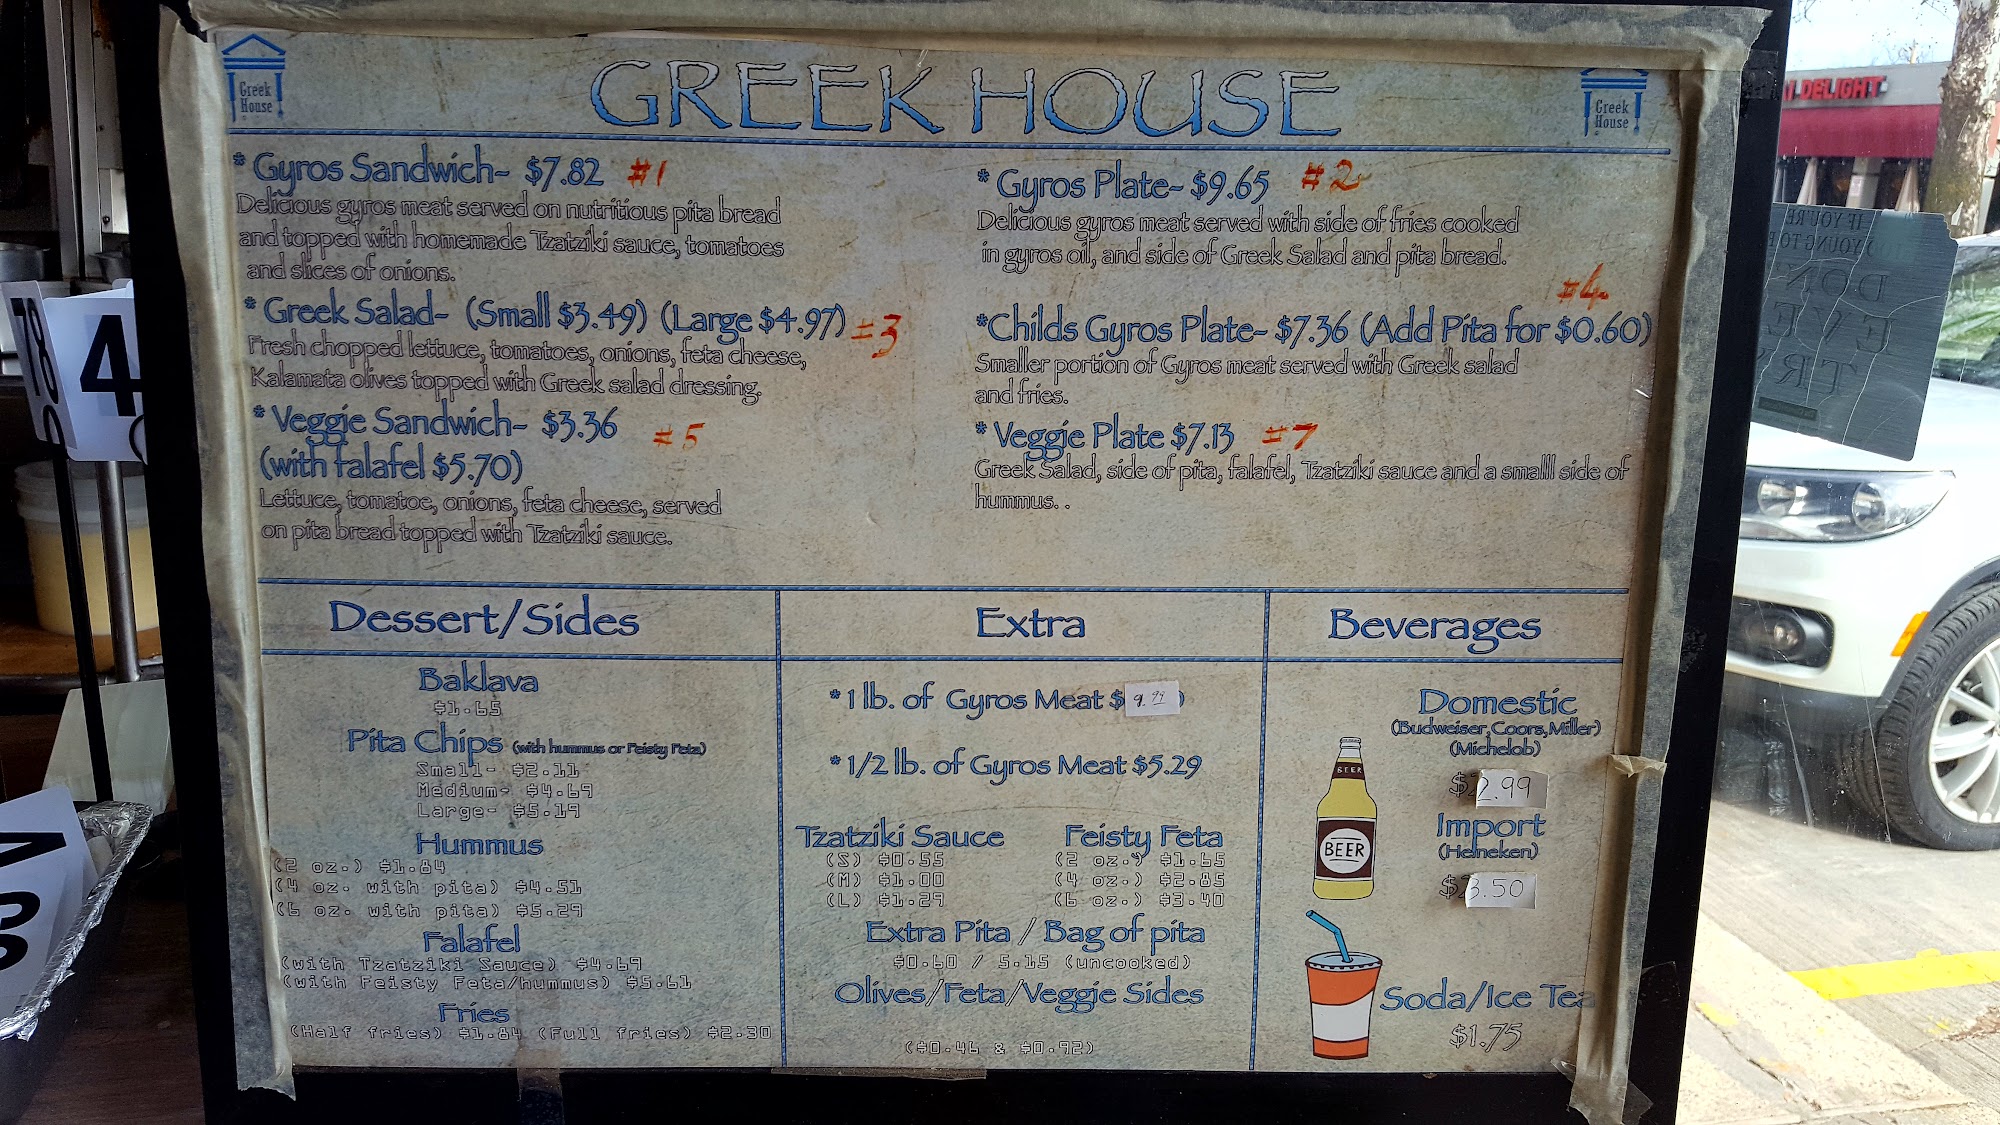 Greek
House
GREEK HOUSE
Greek
House
* Gyros Sandwich~ $7.82 #1
Delicious gyros meat served on nutritious pita bread
and topped with homemade Tzatziki sauce, tomatoes
and slices of onions.
* Greek Salad~ (Small $3.49) (Large $4.97) =3
Fresh chopped lettuce, tomatoes, onions, feta cheese,
Kalamata olives topped with Greek salad dressing.
* Veggie Sandwich~ $3.36 #5
(with falafel $5.70)
Lettuce, tomatoe, onions, feta cheese, served
on pita bread topped with Tzatziki sauce.
* Gyros Plate~ $9.65 #2
Delicious gyros meat served with side of fries cooked
in gyros oil, and side of Greek Salad and pita bread.
#4
*Childs Gyros Plate~ $7.36 (Add Pita for $0.60)
Smaller portion of Gyros meat served with Greek salad
and fries.
* Veggie Plate $7.13 #7
Greek Salad, side of pita, falafel, Tzatziki sauce and a smalll side of
hummus. .
Dessert/Sides
Baklava
$1.65
Pita Chips (with hummus or Feisty Feta)
Small- $2.11
Medium- $4.69
Large- $5.19
Hummus
(2 oz.) $1.84
(4 oz. with pita) $4.51
(6 oz. with pita) $5.29
Falafel
(with Tzatziki Sauce) $4.69
(with Feisty Feta/hummus) $5.61
Fries
(Half fries) $1.84 (Full fries) $2.30
Extra
* 1 lb. of Gyros Meat $9.99)
* 1/2 lb. of Gyros Meat $5.29
Tzatziki Sauce
(S) $0.55
(M) $1.00
(L) $1.29
Feisty Feta
(2 oz.) $1.65
(4 oz.) $2.85
(6 oz.) $3.40
Extra Pita / Bag of pita
$0.60 / 5.15 (uncooked)
Olives/Feta/Veggie Sides
($0.46 & $0.92)
Beverages
Domestic
(Budweiser, Coors, Miller)
(Michelob)
$2.99
Import
(Heineken)
$3.50
BEER
BEER
Soda/Ice Tea
$1.75
78
4
DELIGHT
IF YOU'RE